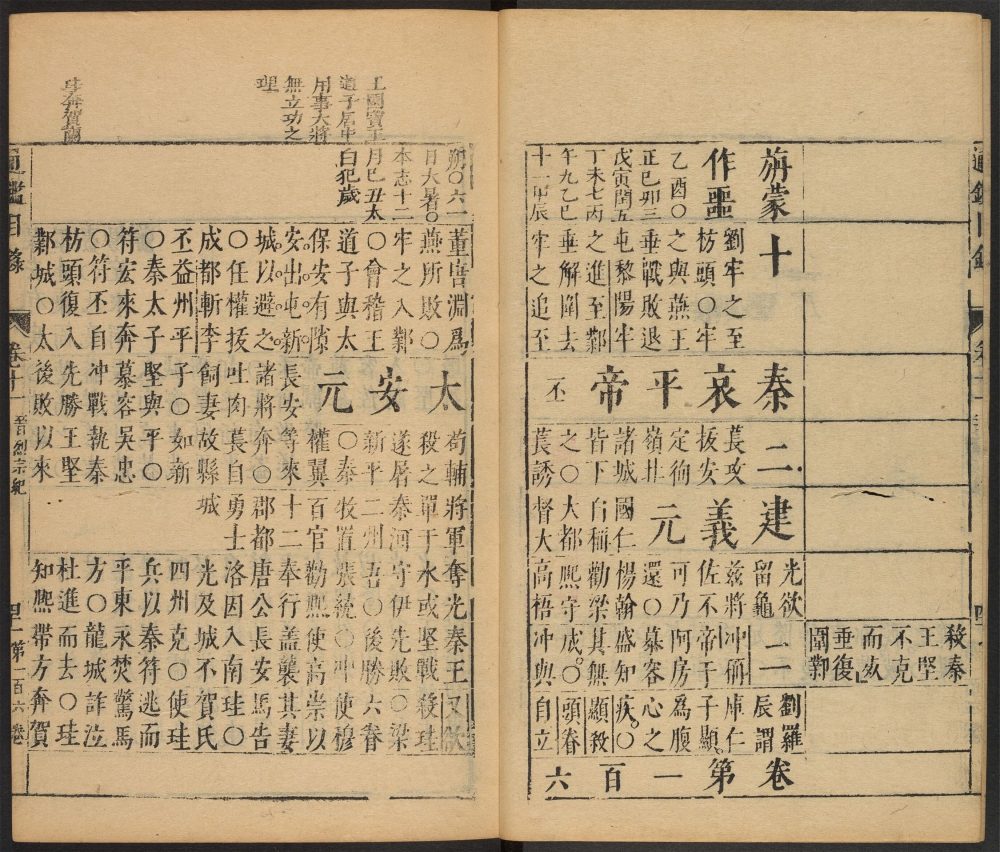 殺秦
王堅
不克
而敓
垂復
圍鄴
旃蒙
作噩
乙酉〇
正巳卯三
戊寅閏五
丁未七丙
午九乙巳
十一甲辰
十
劉牢之至
枋頭〇牢
之與燕王
垂戰敗退
屯黎陽牢
之進至鄴
垂解圍去
牢之追至
秦哀平帝丕
二
萇攻
拔安
定徇
嶺北
諸城
皆下
之〇
萇誘
建義元
國仁
自稱
大都
督大
二
光欲
留龜
茲將
佐不
可乃
還〇
楊翰
勸梁
熙守
高梧
沖稱
帝于
阿房
慕容
盛知
其無
成。
沖與
劉羅
辰謂
庫仁
子顯
為腹
心之
疾。〇
顯殺
頭眷
自立
卷第一百六
王國寶王
道子居中
用事大將
無立功之
理
珪奔賀蘭
朔〇六一
月大暑〇
本志十二
月巳丑太
白犯歲
董唐淵為
燕所敗〇
牢之入鄴
〇會稽王
道子與太
保安有隙
安出屯新
城以避之
〇任權拔
成都斬李
丕益州平
〇秦太子
符宏來奔
〇符丕自
枋頭復入
鄴城〇太
太安元
長安
諸將
吐肉
飼妻
子〇
堅與
慕容
沖戰
先勝
後敗
苟輔
殺之
遂屠
新平
〇秦
權翼
等來
奔〇
萇自
故縣
如新
平〇
吳忠
執秦
王堅
以來
將軍
單于
秦河
二州
牧置
百官
十二
郡都
勇士
城
奪光
水或
守伊
吾〇
張統
勸熙
奉行
唐公
洛因
光及
四州
兵以
平東
方〇
杜進
知熙
秦王
堅戰
先敗
後勝
〇沖
使高
蓋襲
長安
入南
城不
克〇
秦符
永焚
龍城
而去
帶方
又欲
殺珪
〇梁
六眷
使穆
崇以
其妻
馬告
珪〇
賀氏
使珪
逃而
驚馬
詐泣
〇珪
奔賀
通鑑目錄 卷十一 晉烈宗紀 第一百六卷